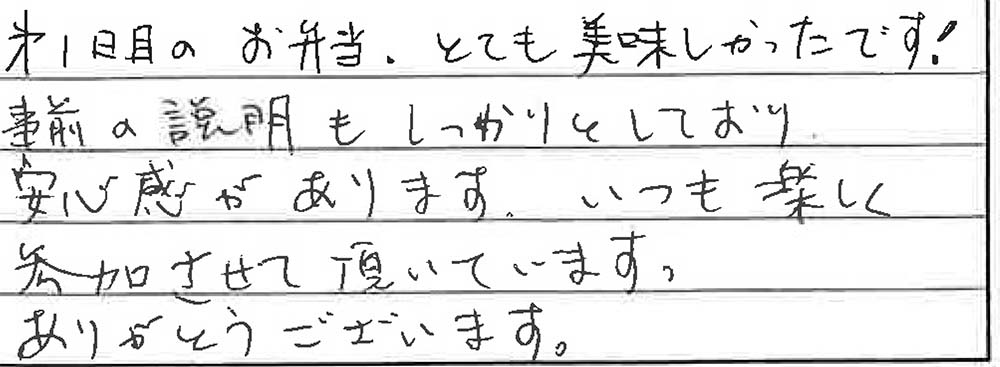 才1日目の お弁当、とても美味しかったです!
事前の説明もしっかりとしており、
安心感があります。いつも楽しく
参加させて頂いています。
ありがとうございます。